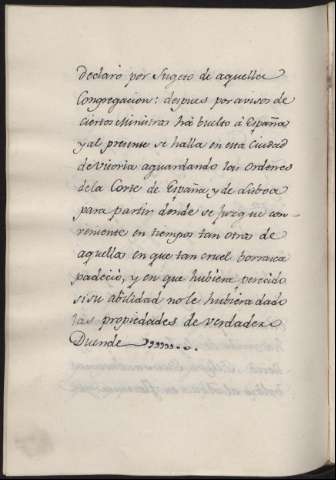 declaró por Sugeto de aquella
Congregacion: despues por avisos de
ciertos Ministros há buelto á España
y al presente se halla en esta Ciudad
de Vitoria aguardando las Ordenes
de la Corte de España, y de Lisboa
para partir donde se juzgue con-
veniente en tiempos tan otros de
aquellos en que tan cruel borrasca
padeció, y en que hubiera perecido
si su abilidad no le hubiera dado
las propiedades de verdadero
Duende